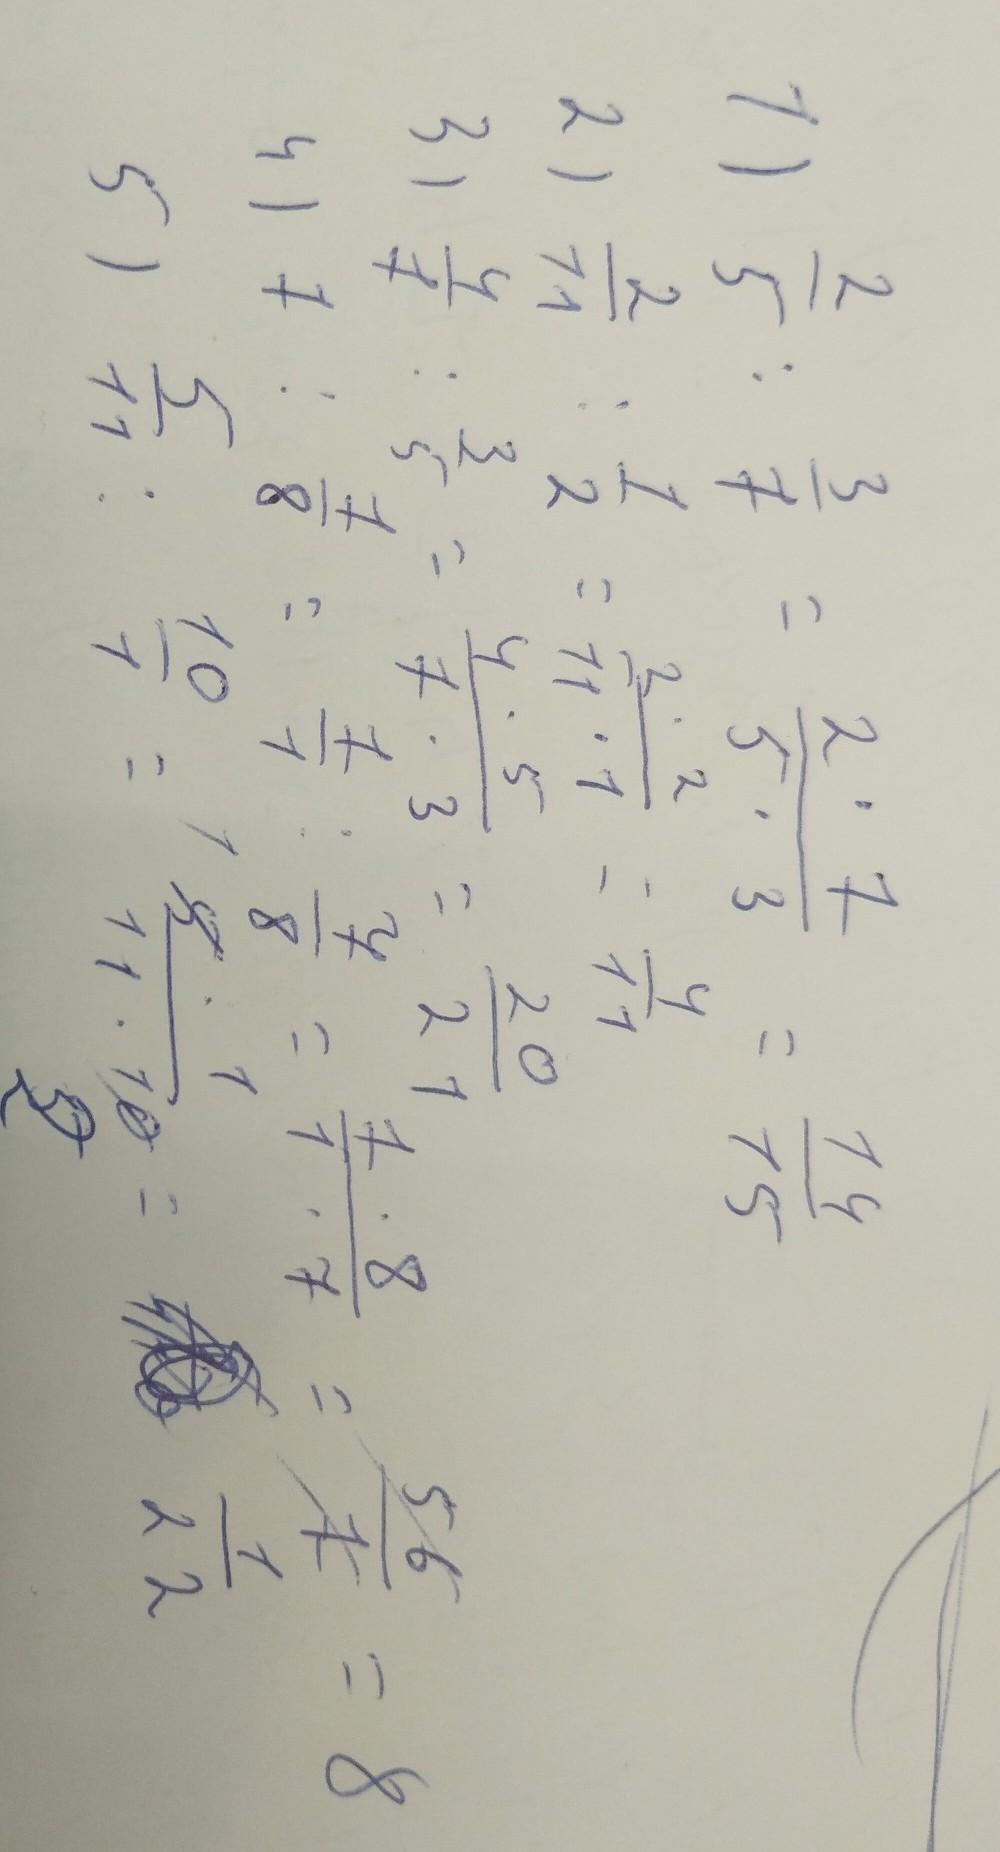 1) 2/5 : 3/7 = 2·7/5·3 = 14/15
2) 2/11 : 1/2 = 2·2/11·1 = 4/11
3) 4/7 : 3/5 = 4·5/7·3 = 20/21
4) 7 : 7/8 = 7/1 : 7/8 = 7·8/1·7 = 56/7 = 8
5) 5/11 : 10/1 = 1 5·1/11·10 2 = 1/22